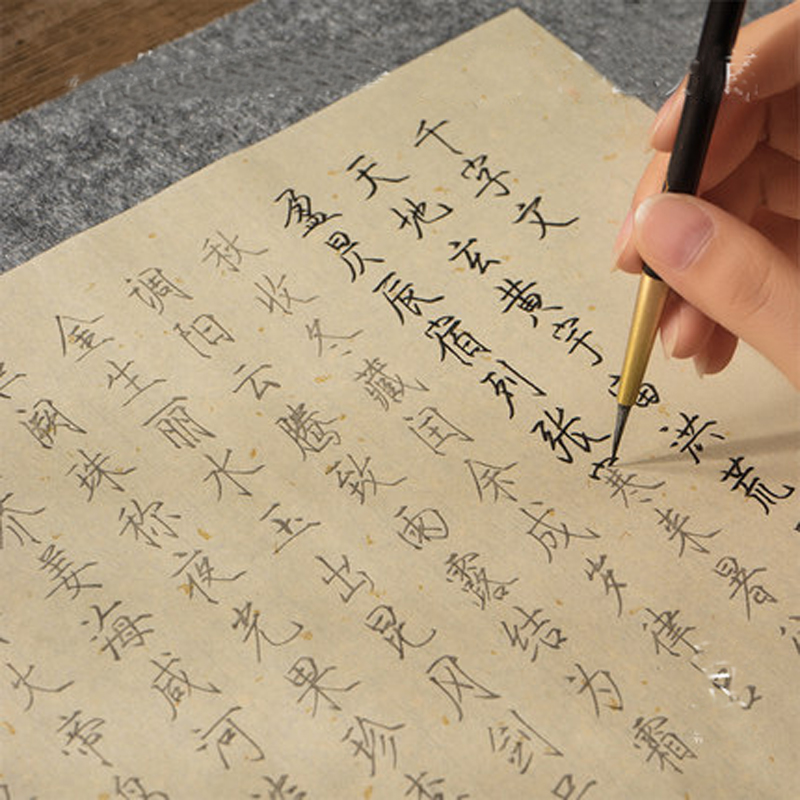 千字文
天地玄黄宇宙洪荒
盈昃辰宿列张寒来暑
秋收冬藏闰余成岁律吕
调阳云腾致雨露结为霜
金生丽水玉出昆冈剑
阙珠称夜光果珍李
芥姜海咸河
火帝鸟